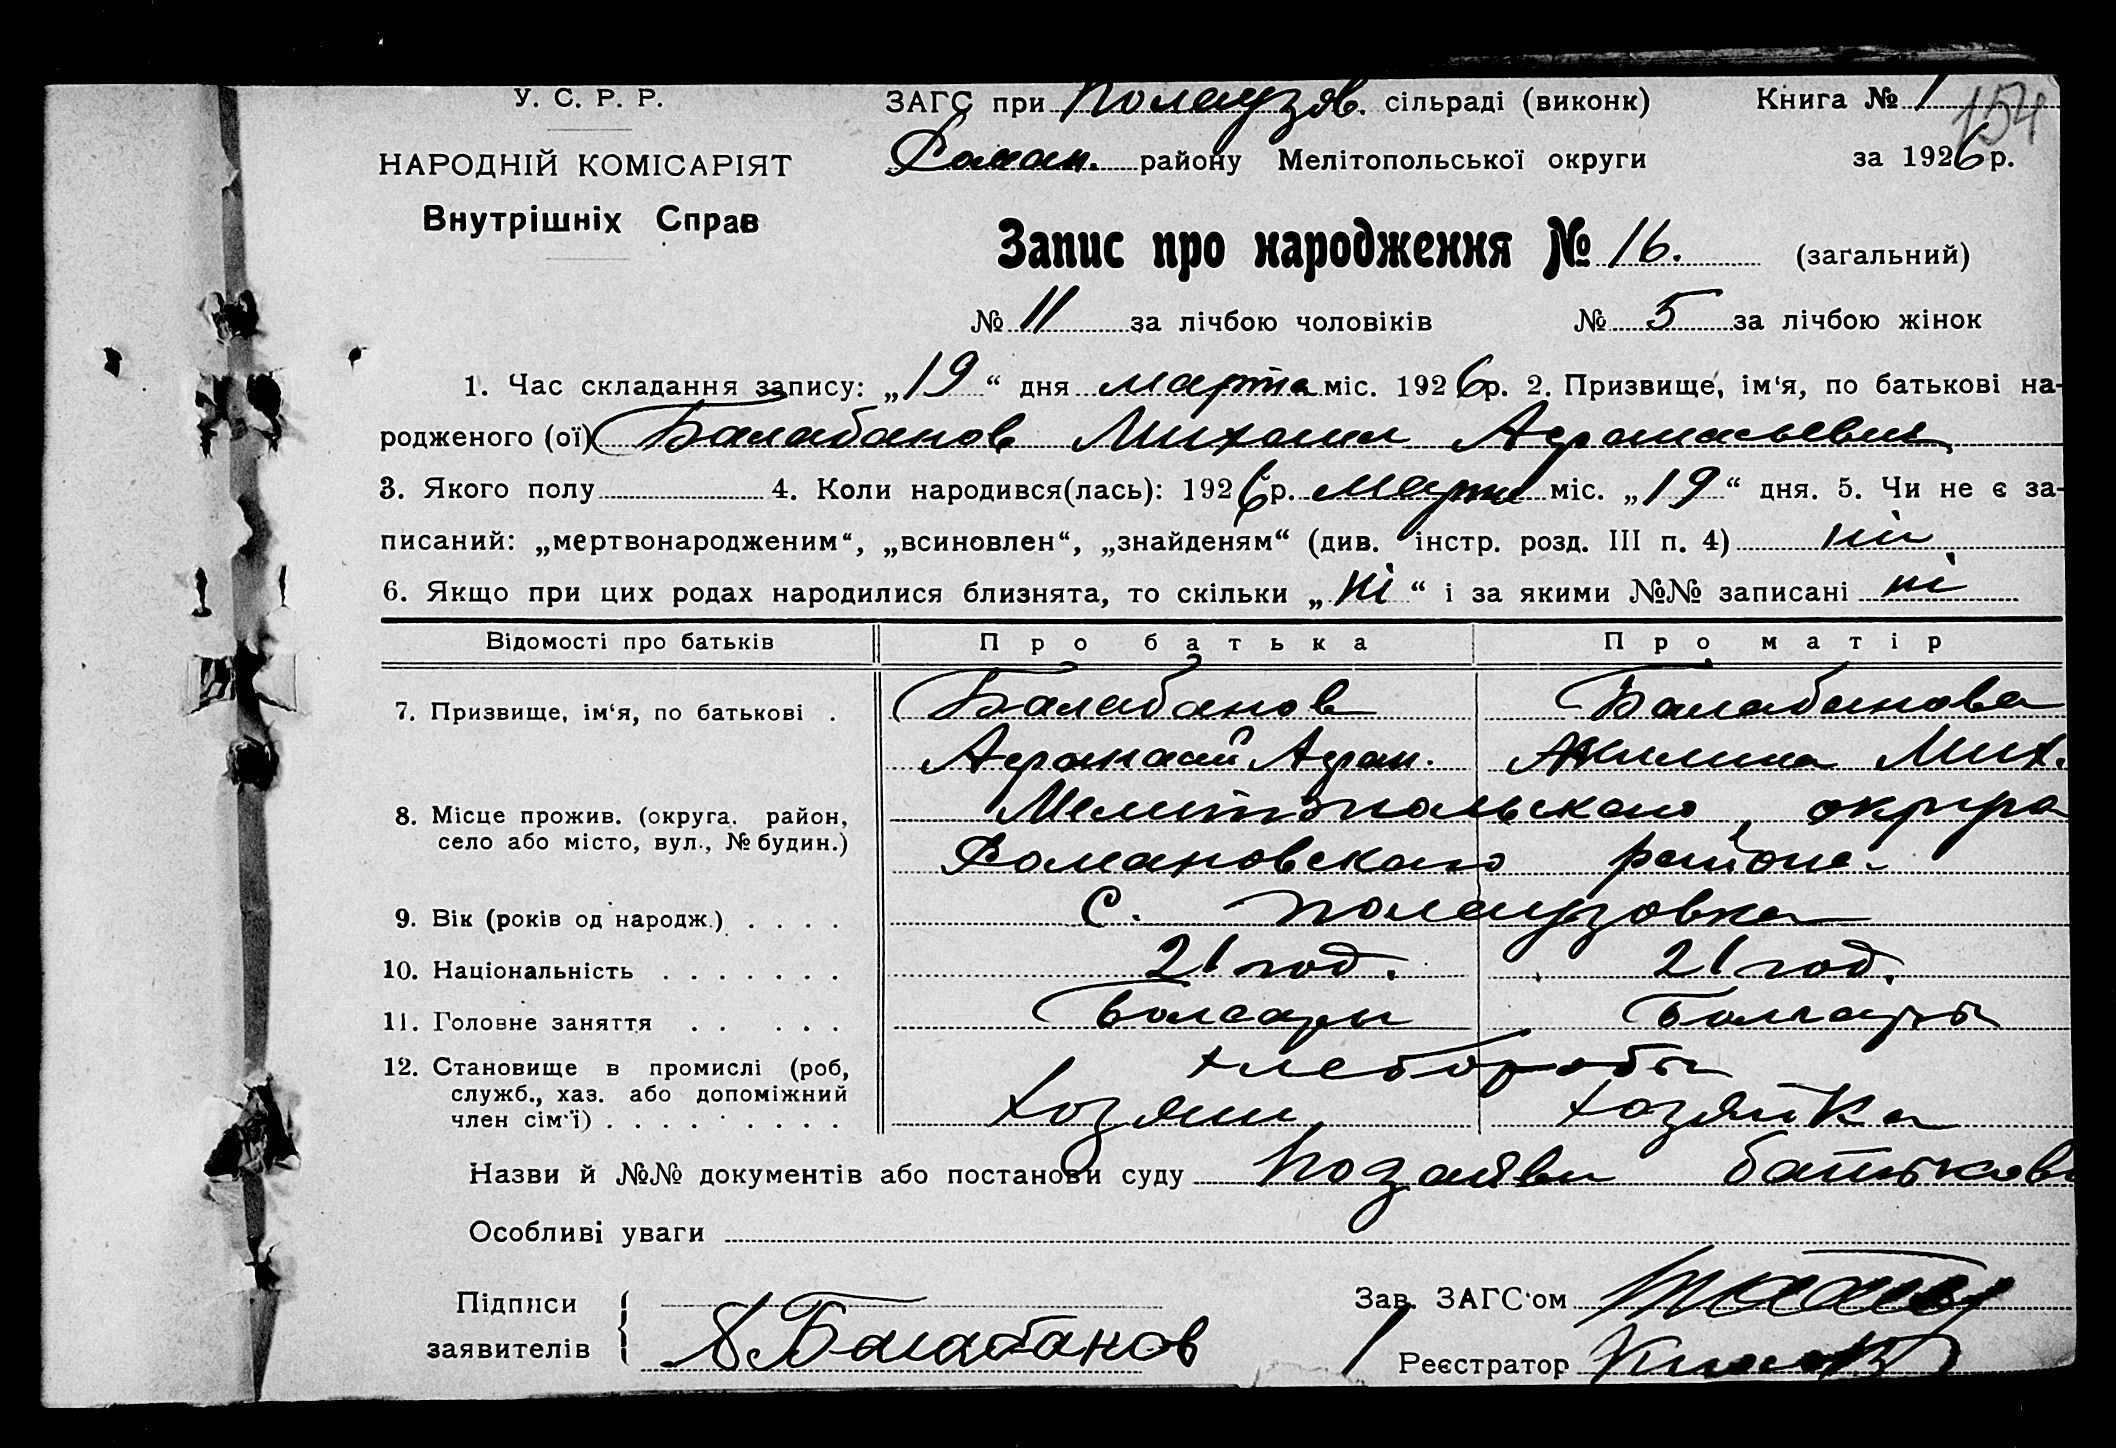 У. С. Р. Р.
НАРОДНІЙ КОМІСАРІЯТ
Внутрішніх Справ
ЗАГС при Полаузов. сільраді (виконк) Книга № 1 154
Роман. району Мелітопольської округи за 1926 р.
Запис про народження № 16. (загальний)
№ 11 за лічбою чоловіків № 5 за лічбою жінок
1. Час складання запису: „19“ дня марта міс. 1926 р. 2. Призвище, ім‘я, по батькові на-
родженого (ої) Балабанов Михаил Афанасьевич
3. Якого полу 4. Коли народився(лась): 1926 р. марта міс. „19“ дня. 5. Чи не є за-
писаний: „мертвонародженим“, „всиновлен“, „знайденям“ (див. інстр. розд. III п. 4) ні
6. Якщо при цих родах народилися близнята, то скільки „ні“ і за якими №№ записані ні
Відомості про батьків Про батька Про матір
7. Призвище, ім‘я, по батькові . Балабанов Балабанова
Афанасий Афан. Мих.
8. Місце прожив. (округа, район, Мелитопольскаго округа
село або місто, вул., № будин.) Романовскаго района
9. Вік (років од народж.) . . . . С. Полаузовка
10. Національність . . . . . . . 21 год. 21 год.
11. Головне заняття . . . . . Болгары Болгары
12. Становище в промислі (роб, хлеборобы
служб., хаз. або допоміжний
член сім‘ї) . . . . . . . . Хозяин хозяйка
Назви й №№ документів або постанови суду по заяви батькови
Особливі уваги
Підписи
заявителів А Балабанов
Зав. ЗАГС‘ом
Реєстратор